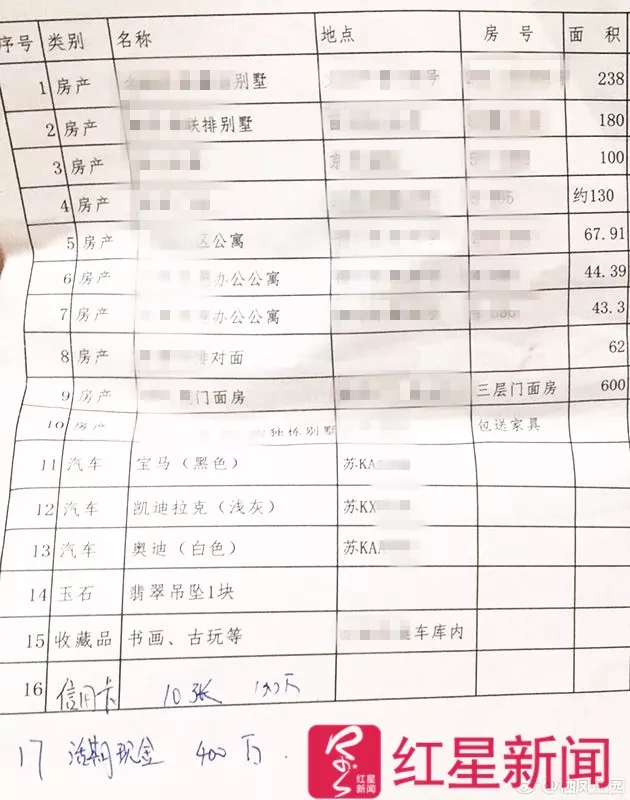 序号 类别 名称 地点 房 号 面 积
1 房产 别墅 号 238
2 房产 联排别墅 180
3 房产 100
4 房产 约130
5 房产 区公寓 67.91
6 房产 办公公寓 44.39
7 房产 办公公寓 43.3
8 房产 对面 62
9 房产 门面房 三层门面房 600
10 房产 独栋别墅 包送家具
11 汽车 宝马（黑色） 苏KA
12 汽车 凯迪拉克（浅灰） 苏KX
13 汽车 奥迪（白色） 苏KA
14 玉石 翡翠吊坠1块
15 收藏品 书画、古玩等 车库内
16 信用卡 10张 万
17 活期现金 400万.
红星新闻
红星新闻